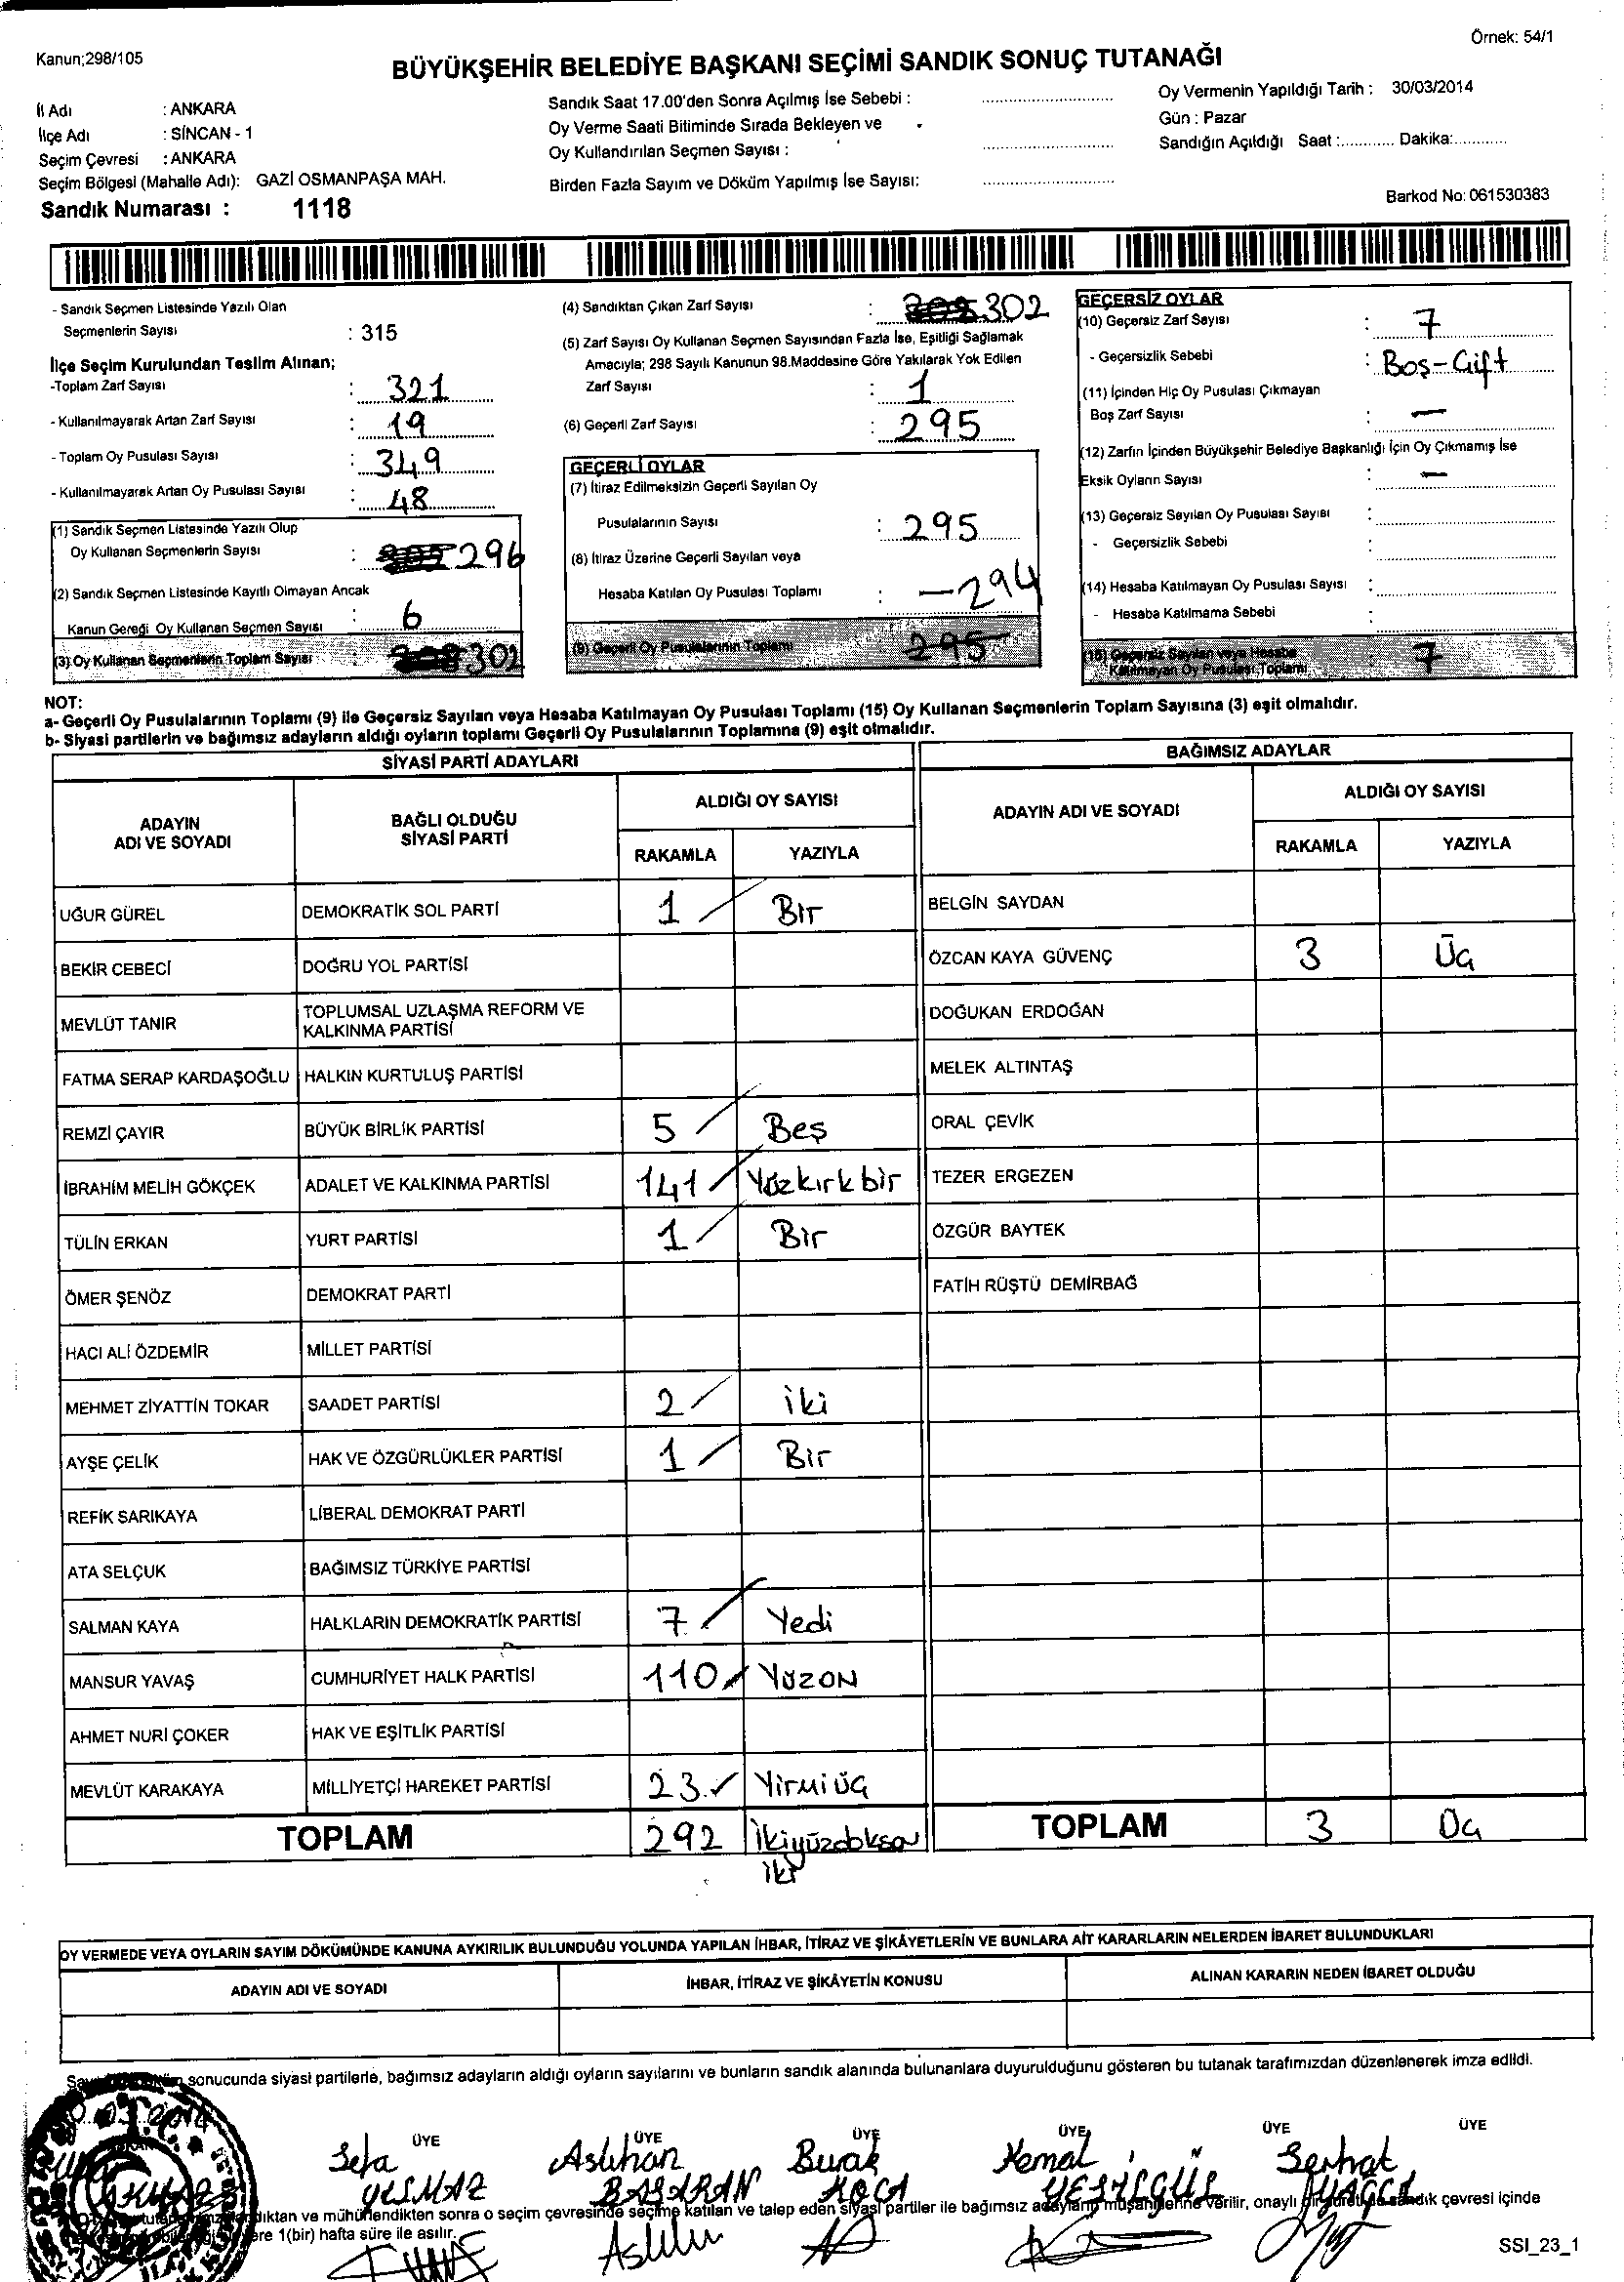 Örnek: 54/1
Kanun;298/105
BÜYÜKŞEHİR BELEDİYE BAŞKANI SEÇİMİ SANDIK SONUÇ TUTANAĞI
İl Adı : ANKARA
İlçe Adı : SİNCAN - 1
Seçim Çevresi : ANKARA
Seçim Bölgesi (Mahalle Adı): GAZİ OSMANPAŞA MAH.
Sandık Numarası : 1118
Sandık Saat 17.00'den Sonra Açılmış İse Sebebi :
Oy Verme Saati Bitiminde Sırada Bekleyen ve
Oy Kullandırılan Seçmen Sayısı :
Birden Fazla Sayım ve Döküm Yapılmış İse Sayısı:
Oy Vermenin Yapıldığı Tarih : 30/03/2014
Gün : Pazar
Sandığın Açıldığı Saat :............ Dakika:............
Barkod No: 061530383
- Sandık Seçmen Listesinde Yazılı Olan
Seçmenlerin Sayısı : 315
İlçe Seçim Kurulundan Teslim Alınan;
-Toplam Zarf Sayısı : 321
- Kullanılmayarak Artan Zarf Sayısı : 19
- Toplam Oy Pusulası Sayısı : 349
- Kullanılmayarak Artan Oy Pusulası Sayısı : 48
(1) Sandık Seçmen Listesinde Yazılı Olup
Oy Kullanan Seçmenlerin Sayısı : 296
(2) Sandık Seçmen Listesinde Kayıtlı Olmayan Ancak
Kanun Gereği Oy Kullanan Seçmen Sayısı : 6
(3) Oy Kullanan Seçmenlerin Toplam Sayısı : 302
(4) Sandıktan Çıkan Zarf Sayısı : 302
(5) Zarf Sayısı Oy Kullanan Seçmen Sayısından Fazla İse, Eşitliği Sağlamak
Amacıyla; 298 Sayılı Kanunun 98.Maddesine Göre Yakılarak Yok Edilen
Zarf Sayısı : 1
(6) Geçerli Zarf Sayısı : 295
GEÇERLİ OYLAR
(7) İtiraz Edilmeksizin Geçerli Sayılan Oy
Pusulalarının Sayısı : 295
(8) İtiraz Üzerine Geçerli Sayılan veya
Hesaba Katılan Oy Pusulası Toplamı : — 294
(9) Geçerli Oy Pusulalarının Toplamı 295
GEÇERSİZ OYLAR
(10) Geçersiz Zarf Sayısı : 7
- Geçersizlik Sebebi : Boş-Çift
(11) İçinden Hiç Oy Pusulası Çıkmayan
Boş Zarf Sayısı : —
(12) Zarfın İçinden Büyükşehir Belediye Başkanlığı İçin Oy Çıkmamış İse
Eksik Oyların Sayısı : —
(13) Geçersiz Sayılan Oy Pusulası Sayısı :
- Geçersizlik Sebebi :
(14) Hesaba Katılmayan Oy Pusulası Sayısı :
- Hesaba Katılmama Sebebi :
(15) Geçersiz Sayılan veya Hesaba
Katılmayan Oy Pusulası Toplamı 7
NOT:
a- Geçerli Oy Pusulalarının Toplamı (9) ile Geçersiz Sayılan veya Hesaba Katılmayan Oy Pusulası Toplamı (15) Oy Kullanan Seçmenlerin Toplam Sayısına (3) eşit olmalıdır.
b- Siyasi partilerin ve bağımsız adayların aldığı oyların toplamı Geçerli Oy Pusulalarının Toplamına (9) eşit olmalıdır.
SİYASİ PARTİ ADAYLARI
ADAYIN ADI VE SOYADI BAĞLI OLDUĞU SİYASİ PARTİ ALDIĞI OY SAYISI
RAKAMLA YAZIYLA
UĞUR GÜREL DEMOKRATİK SOL PARTİ 1 Bir
BEKİR CEBECİ DOĞRU YOL PARTİSİ
MEVLÜT TANIR TOPLUMSAL UZLAŞMA REFORM VE KALKINMA PARTİSİ
FATMA SERAP KARDAŞOĞLU HALKIN KURTULUŞ PARTİSİ
REMZİ ÇAYIR BÜYÜK BİRLİK PARTİSİ 5 Beş
İBRAHİM MELİH GÖKÇEK ADALET VE KALKINMA PARTİSİ 141 Yüzkırkbir
TÜLİN ERKAN YURT PARTİSİ 1 Bir
ÖMER ŞENÖZ DEMOKRAT PARTİ
HACI ALİ ÖZDEMİR MİLLET PARTİSİ
MEHMET ZİYATTİN TOKAR SAADET PARTİSİ 2 iki
AYŞE ÇELİK HAK VE ÖZGÜRLÜKLER PARTİSİ 1 Bir
REFİK SARIKAYA LİBERAL DEMOKRAT PARTİ
ATA SELÇUK BAĞIMSIZ TÜRKİYE PARTİSİ
SALMAN KAYA HALKLARIN DEMOKRATİK PARTİSİ 7 Yedi
MANSUR YAVAŞ CUMHURİYET HALK PARTİSİ 110 YüzON
AHMET NURİ ÇOKER HAK VE EŞİTLİK PARTİSİ
MEVLÜT KARAKAYA MİLLİYETÇİ HAREKET PARTİSİ 23 Yirmiüç
TOPLAM 292 İkiyüzdoksan
iki
BAĞIMSIZ ADAYLAR
ADAYIN ADI VE SOYADI ALDIĞI OY SAYISI
RAKAMLA YAZIYLA
BELGİN SAYDAN
ÖZCAN KAYA GÜVENÇ 3 Üç
DOĞUKAN ERDOĞAN
MELEK ALTINTAŞ
ORAL ÇEVİK
TEZER ERGEZEN
ÖZGÜR BAYTEK
FATİH RÜŞTÜ DEMİRBAĞ
TOPLAM 3 Üç
OY VERMEDE VEYA OYLARIN SAYIM DÖKÜMÜNDE KANUNA AYKIRILIK BULUNDUĞU YOLUNDA YAPILAN İHBAR, İTİRAZ VE ŞİKÂYETLERİN VE BUNLARA AİT KARARLARIN NELERDEN İBARET BULUNDUKLARI
ADAYIN ADI VE SOYADI İHBAR, İTİRAZ VE ŞİKÂYETİN KONUSU ALINAN KARARIN NEDEN İBARET OLDUĞU
sonucunda siyasi partilerle, bağımsız adayların aldığı oyların sayılarını ve bunların sandık alanında bulunanlara duyurulduğunu gösteren bu tutanak tarafımızdan düzenlenerek imza edildi.
ÜYE ÜYE ÜYE ÜYE ÜYE ÜYE
Sefa Aslıhan Burak Kemal Serhat
YILMAZ BAŞARAN KOCA YEŞİLGÜL
ve mühürlendikten sonra o seçim çevresinde seçime katılan ve talep eden siyasi partiler ile bağımsız adayların müşahitlerine verilir, onaylı sandık çevresi içinde
1(bir) hafta süre ile asılır.
SSI_23_1